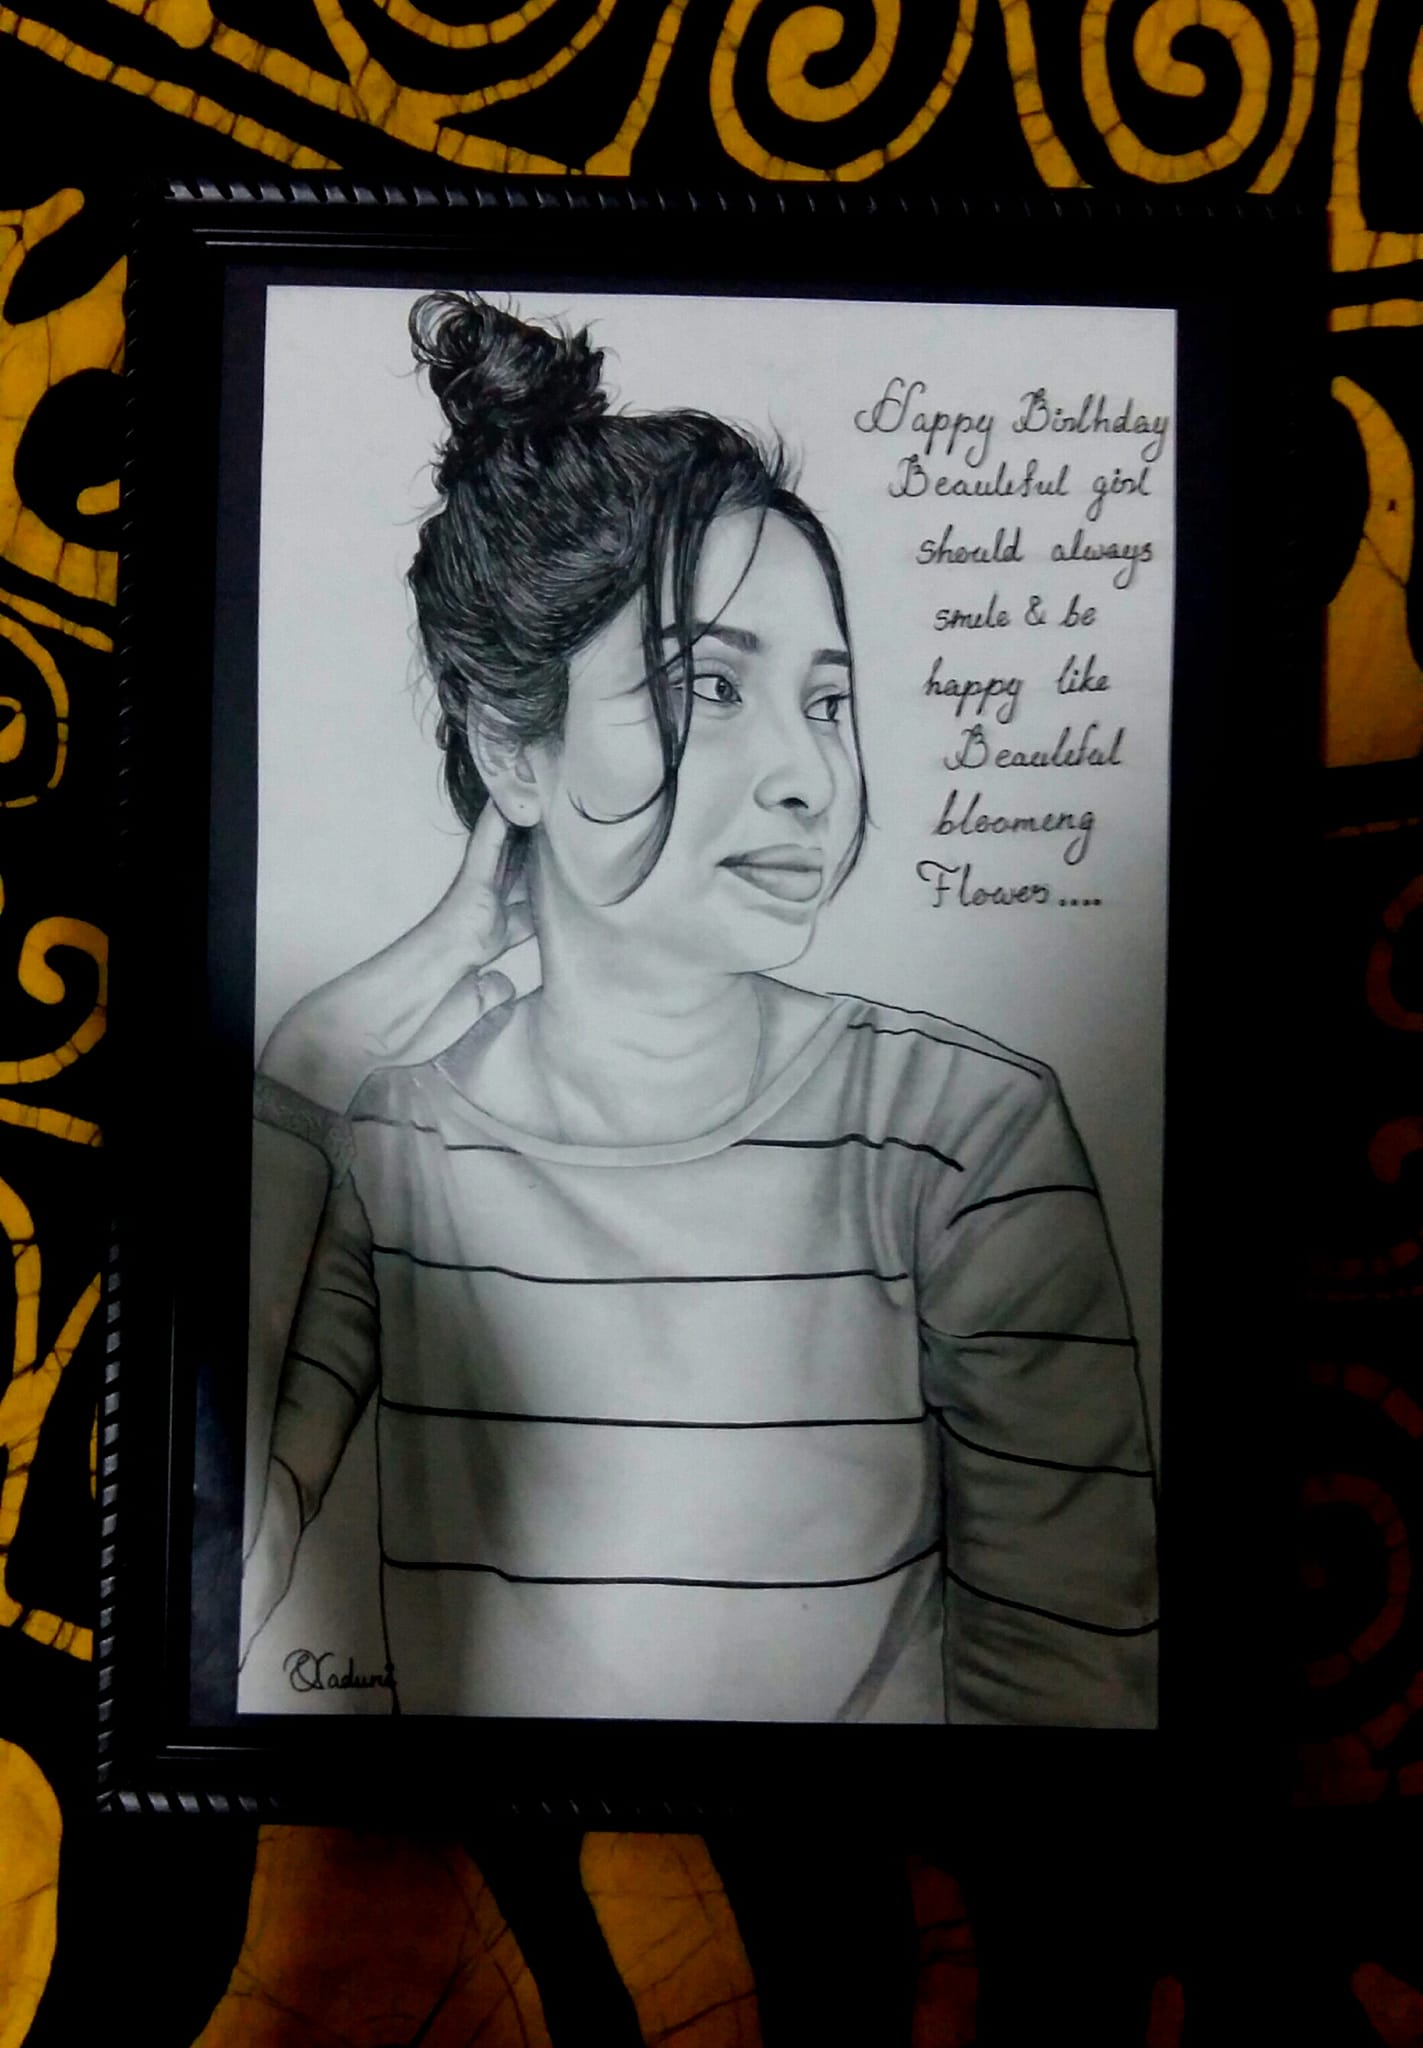 Happy Birthday
Beautiful girl
should always
smile & be
happy like
Beautiful
blooming
Flower....
Naduni